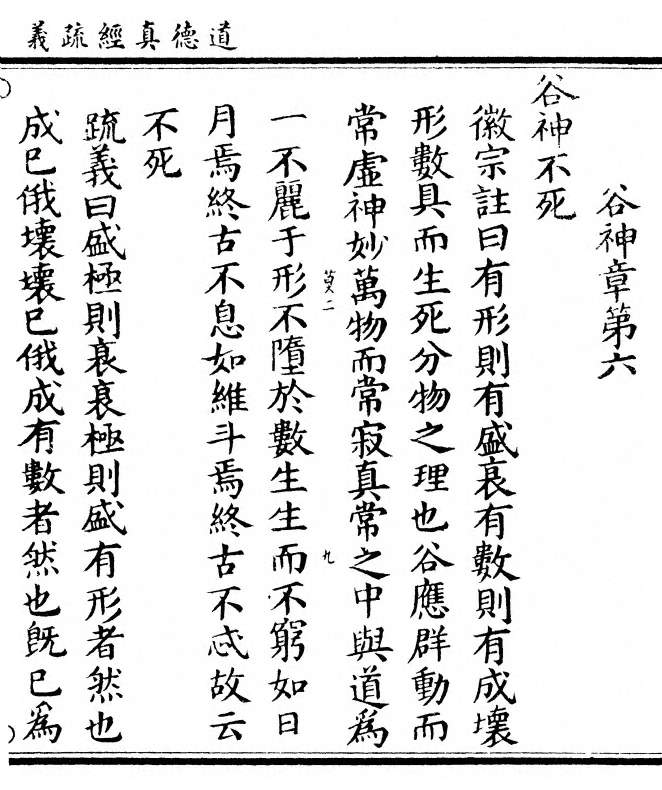 道德真經疏義
谷神章第六
谷神不死
徽宗註曰有形則有盛衰有數則有成壞
形數具而生死分物之理也谷應群動而
常虛神妙萬物而常寂真常之中與道爲
一不麗于形不墮於數生生而不窮如日
莫二
九
月焉終古不息如維斗焉終古不忒故云
不死
疏義曰盛極則衰衰極則盛有形者然也
成已俄壞壞已俄成有數者然也旣已爲